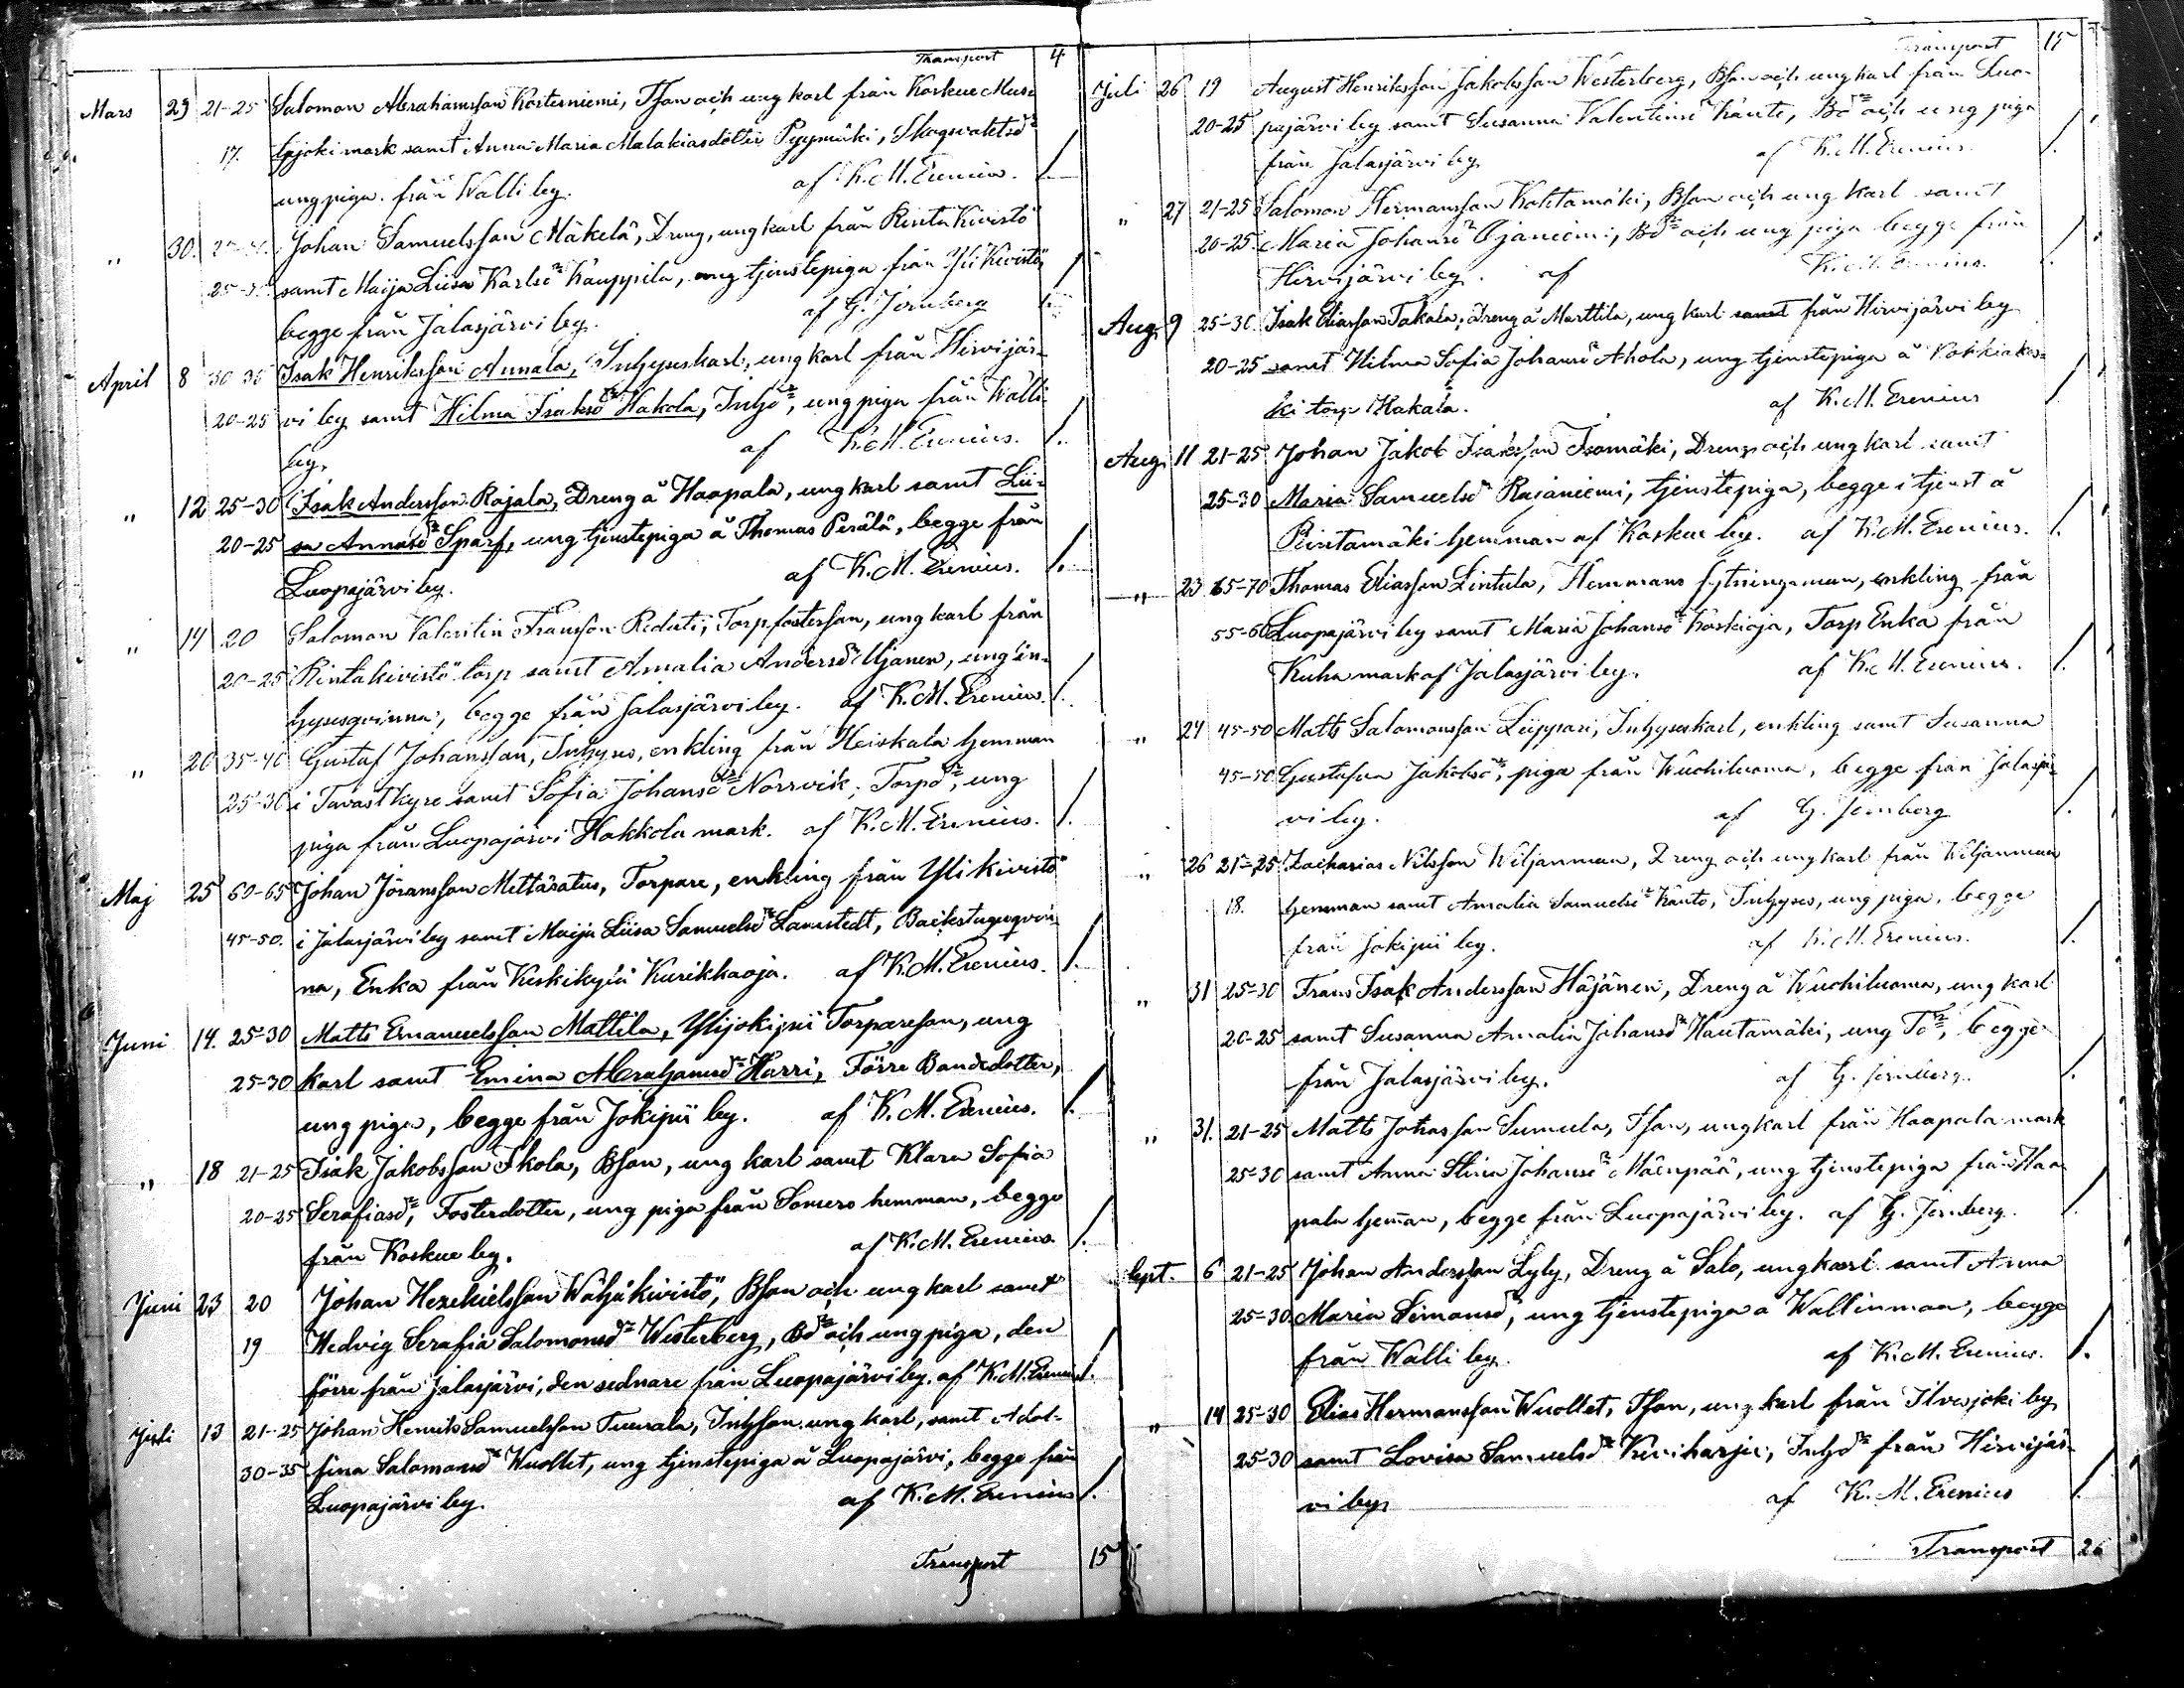 Transport 4
Mars 29 21-25 Salomon Abrahamsson Koskiniemi, Tson och ung karl från Koskue Musta
17. lajoki mark samt Anna Maria Malakiasdotter Pyymäki, Skogvaktsdr
ung piga från Walli by. af K. M. Erenius. 1.
" 30. 25-30 Johan Samuelsson Mäkelä, Dreng, ung karl från Rinta Kivistö
25-30 samt Maija Liisa Karlsdr Kauppila, ung tjenstepiga från Yli Kivistö,
begge från Jalasjärvi by. af G. Jernberg 1.
April 8 30-35 Isak Henriksson Annala, Inhyseskarl, ung karl från Hirvijär-
20-25 vi by samt Hilma Isaksdr Hakola, Inhdr, ung piga från Walli
by. af K. M. Erenius. 1.
" 12 25-30 Isak Andersson Rajala, Dreng å Haapala, ung karl samt Lii-
20-25 sa Annasdr Sparf, ung tjenstepiga å Thomas Perälä, begge från
Luopajärvi by. af K. M. Erenius. 1.
" 14 20 Salomon Valentin Fransson Reduti, Torpfosterson, ung karl från
20-25 Rintakivistö torp samt Amalia Andersdr Ujanen, ung in-
hysesqvinna, begge från Jalasjärvi by. af K. M. Erenius. 1.
" 20 35-40 Gustaf Johansson, Inhyses, enkling från Heiskala hemman
25-30 i Tavastkyro samt Sofia Johansdr Norrvik, Torpdr, ung
piga från Luopajärvi Hakkola mark. af K. M. Erenius. 1.
Maj 25 60-65 Johan Jöransson Mettäratus, Torpare, enkling från Ylikivistö
45-50. i Jalasjärvi by samt Maija Liisa Samuelsdr Lannstedt, Backstuguqvin-
na, Enka från Keskikylä Kurikkaoja. af K. M. Erenius. 1.
Juni 14. 25-30 Matts Emanuelsson Mattila, Ylijokipii Torpareson, ung
25-30 karl samt Emina Abrahamsdr Harri, Förre Bondedotter,
ung piga, begge från Jokipii by. af K. M. Erenius. 1.
" 18 21-25 Isak Jakobsson Ikola, Bson, ung karl samt Klara Sofia
20-25 Serafiasdr, Fosterdotter, ung piga från Somero hemman, begge
från Koskue by. af K. M. Erenius 1.
Juni 23 20 Johan Hezekielsson Wähäkivistö, Bson och ung karl samt
19 Hedvig Serafia Salomonsdr Westerberg, Bdr och ung piga, den
förre från Jalasjärvi, den sednare från Luopajärvi by. af K. M. Erenius 1.
Juli 13 21-25 Johan Henrik Samuelsson Tuurala, Inhson, ung karl, samt Adol-
30-35 fina Salomonsdr Wuollet, ung tjenstepiga å Luopajärvi, begge från
Luopajärvi by. af K. M. Erenius 1.
Transport 15
Transport 15
Juli 26 19 August Henriksson Jakobsson Westerberg, Bson och ung karl från Luo-
20-25 pajärvi by samt Susanna Valentinsdr Kanté, Bdr och ung piga
från Jalasjärvi by af K. M. Erenius. 1.
" 27 21-25 Salomon Hermansson Kohtamäki, Bson och ung karl samt
20-25 Maria Johansdr Ojaniemi, Bdr och ung piga begge från
Hirvijärvi by. af K. M. Erenius. 1.
Aug. 9 25-30. Isak Eliasson Takala, Dreng å Marttila, ung karl samt från Hirvijärvi by
20-25 samt Hilma Sofia Johansdr Ahola, ung tjenstepiga å Kokkokos-
ki torp Hakala. af K. M. Erenius 1.
Aug. 11 21-25 Johan Jakob Isaksson Isomäki, Dreng och ung karl samt
25-30 Maria Samuelsdr Rajaniemi, tjenstepiga, begge i tjenst å
Rintamäki hemman af Koskue by. af K. M. Erenius. 1.
" 23 65-70 Thomas Eliasson Lintula, Hemmans sytningsman, enkling från
55-60 Luopajärvi by samt Maria Johansdr Koskioja, Torp Enka från
Kuha mark af Jalasjärvi by. af K. M. Erenius. 1.
" 24 45-50 Matts Salomonsson Liippari, Inhyseskarl, enkling samt Susanna
45-50 Gustafva Jakobsdr, piga från Wuohiluoma, begge från Jalasjär-
vi by. af G. Jernberg 1.
" 26 21-25 Zacharias Nilsson Wiljanmaa, Dreng och ung karl från Wiljanmaa
18. hemman samt Amalia Samuelsdr Kantó, Inhyses, ung piga, begge
från Jokipii by. af K. M. Erenius. 1.
" 31 25-30 Frans Isak Andersson Häjänen, Dreng å Wuohiluoma, ung karl
20-25 samt Susanna Amalia Johansdr Hautamäki, ung Tdr, begge
från Jalasjärvi by. af G. Jernberg. 1.
" 31. 21-25 Matts Johansson Sumula, Tson, ung karl från Haapala mark
25-30 samt Anna Stina Johansdr Mäenpää, ung tjenstepiga från Haa
pala heman, begge från Luopajärvi by. af G. Jernberg. 1.
Sept. 6 21-25 Johan Andersson Lyly, Dreng å Salo, ung karl samt Anna
25-30. Maria Simonsdr, ung tjenstepiga å Wallinmaa, begge
från Walli by. af K. M. Erenius. 1.
" 14 25-30 Elias Hermansson Wuollet, Tson, ung karl från Ilvesjoki by
25-30 samt Lovisa Samuelsdr Kiviharju, Inhdr från Hirvijär-
vi by. af K. M. Erenius 1.
Transport 26